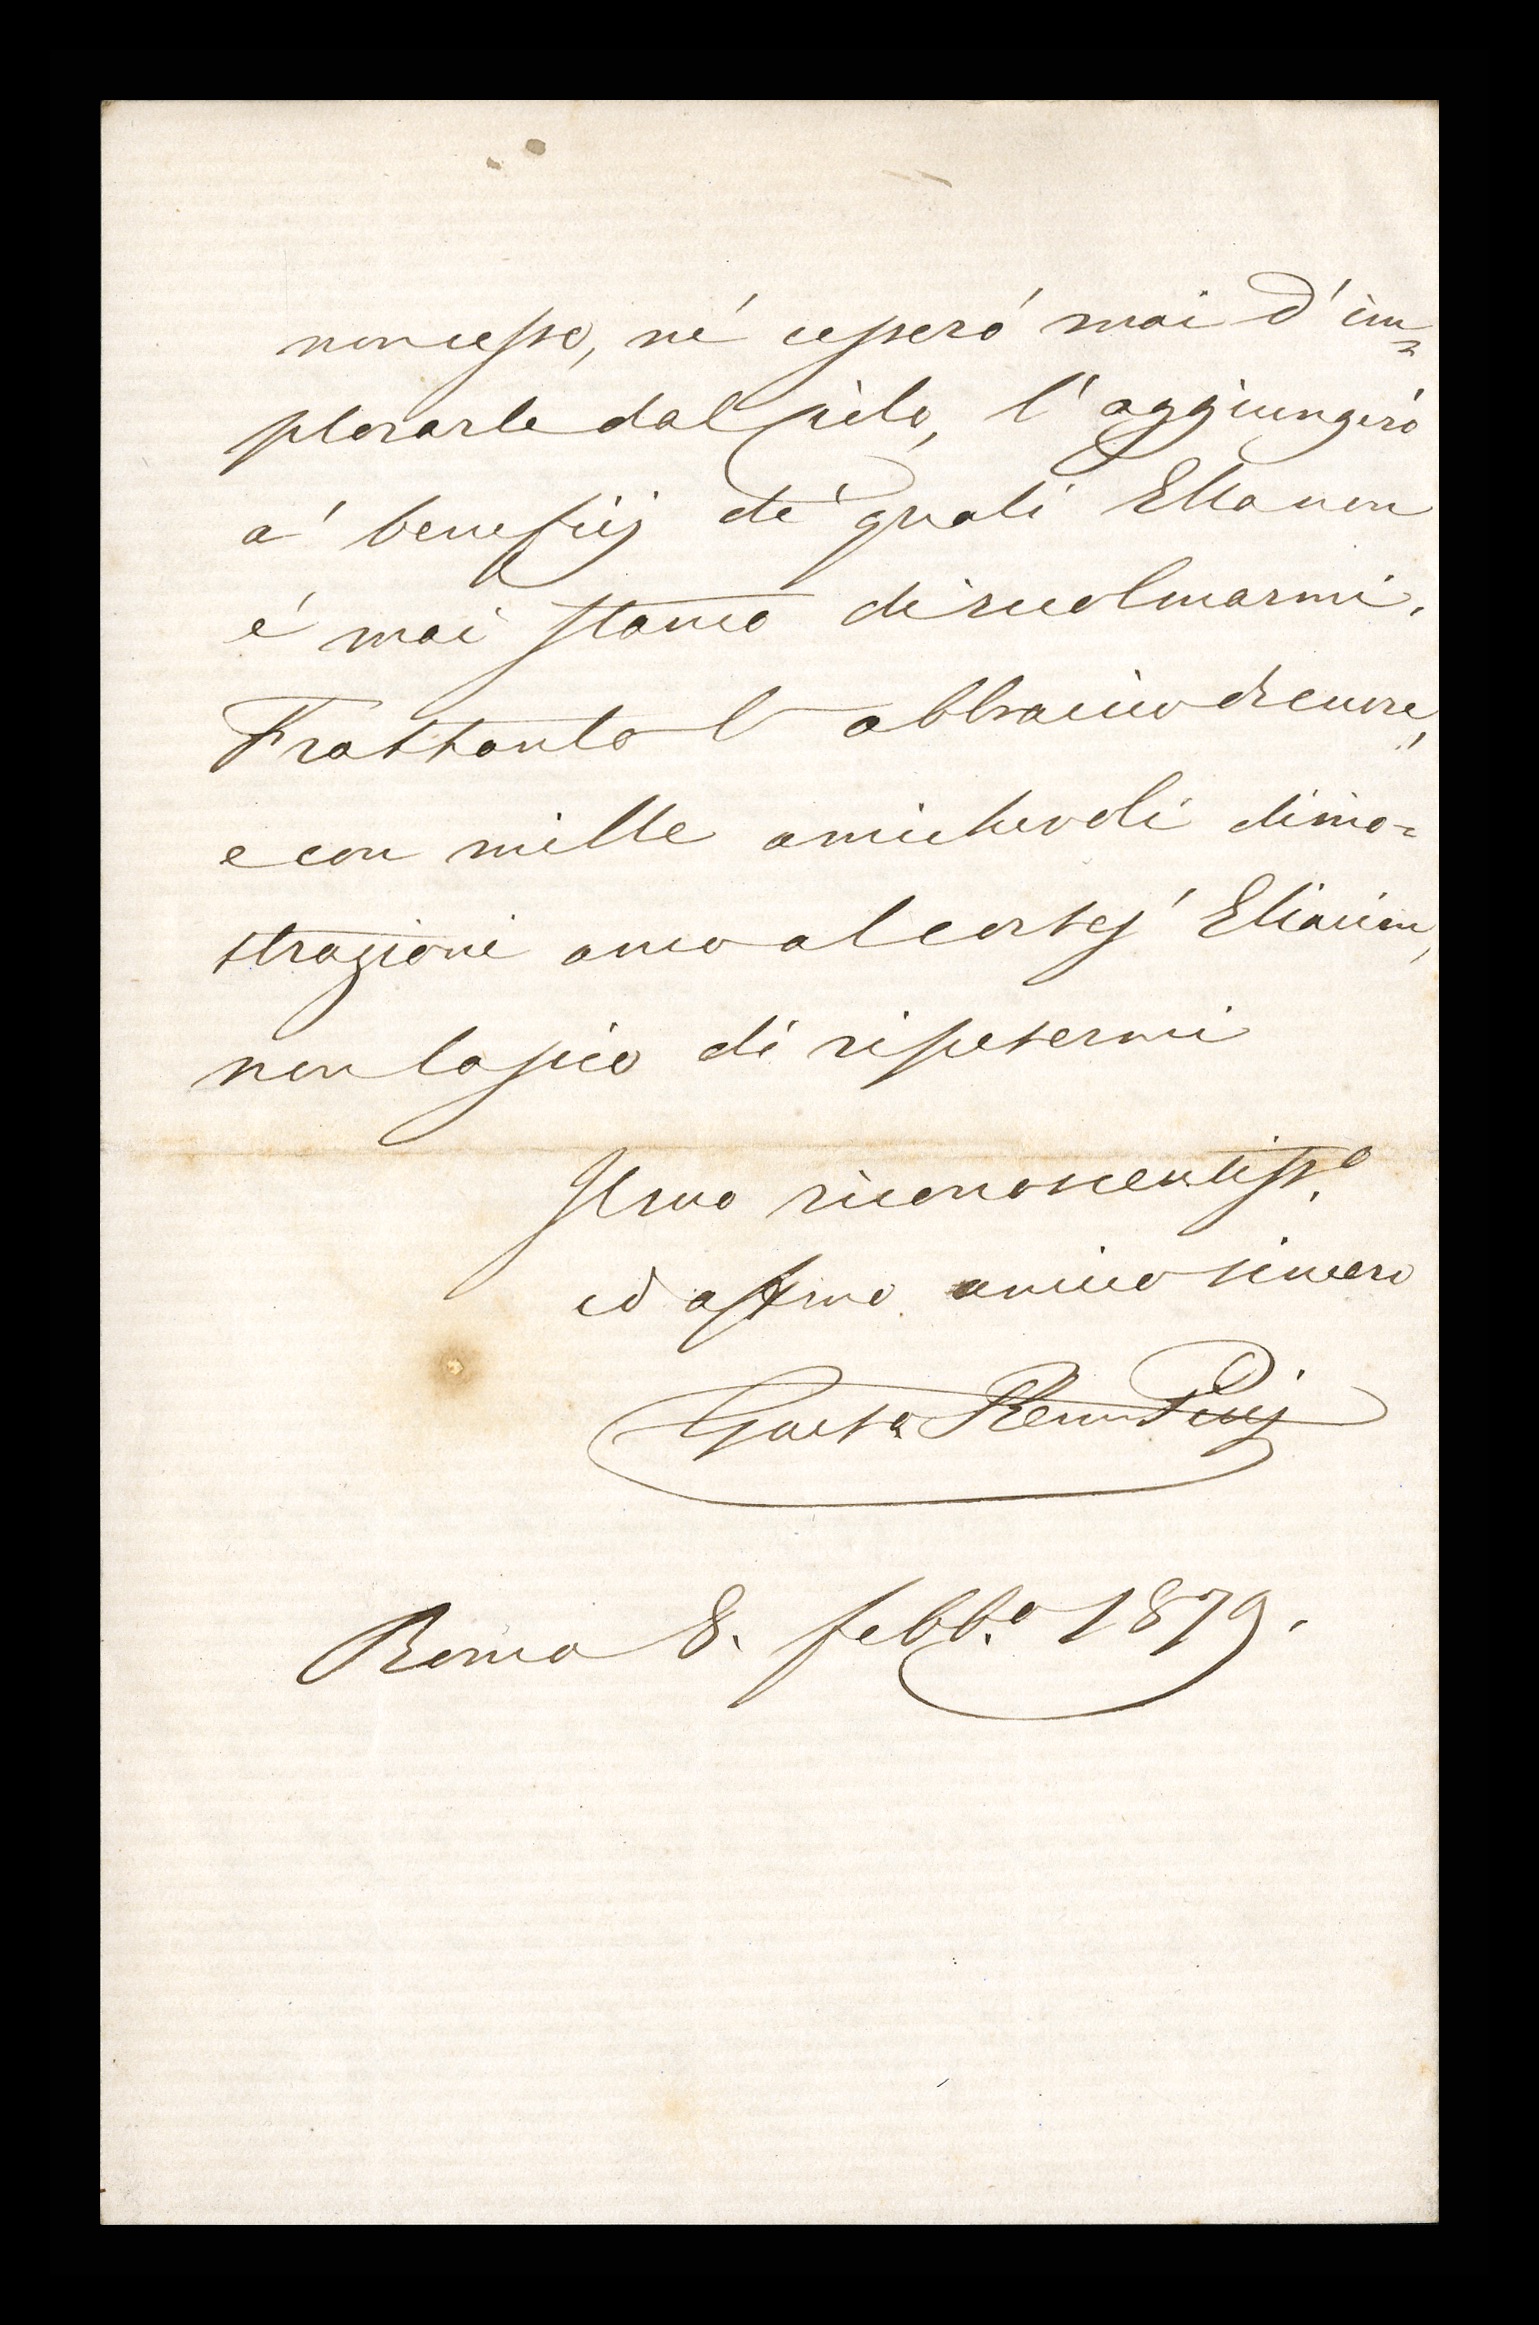 non cesso, né cesseró mai d'im=
plorarle dal cielo, l'aggiungeró
a' beneficij de' quali Ella non
é mai stanco di ricolmarmi.
Frattanto l'abbraccio di cuore,
e con mille amichevoli dimo=
strazioni anco al cortes'
non lascio di ripetermi
Il suo riconoscentiss.o
ed affmo amico sincero
Roma 8. febb.o 1879.